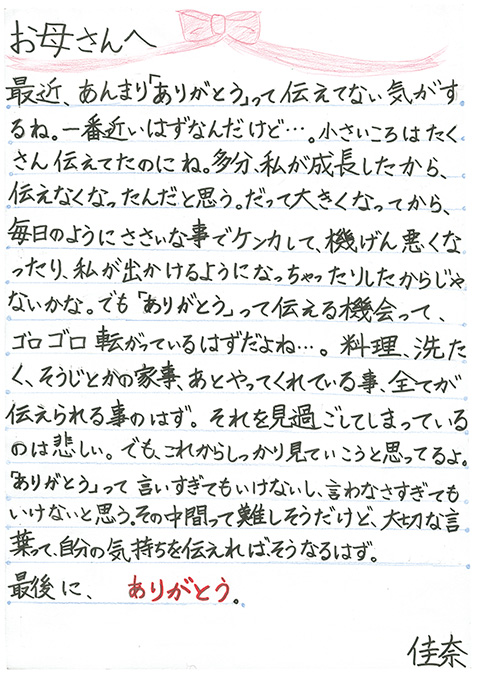 お母さんへ
最近、あんまり「ありがとう」って伝えてない気がす
るね。一番近いはずなんだけど…。小さいころはたく
さん伝えてたのにね。多分、私が成長したから、
伝えなくなったんだと思う。だって大きくなってから、
毎日のようにささいな事でケンカして、機げん悪くな
ったり、私が出かけるようになっちゃったりしたからじゃ
ないかな。でも「ありがとう」って伝える機会って、
ゴロゴロ転がっているはずだよね…。料理、洗た
く、そうじとかの家事、あとやってくれている事、全てが
伝えられる事のはず。それを見過ごしてしまっている
のは悲しい。でも、これからしっかり見ていこうと思ってるよ。
「ありがとう」って言いすぎてもいけないし、言わなさすぎても
いけないと思う。その中間って難しそうだけど、大切な言
葉って、自分の気持ちを伝えればそうなるはず。
最後に、ありがとう。
佳奈